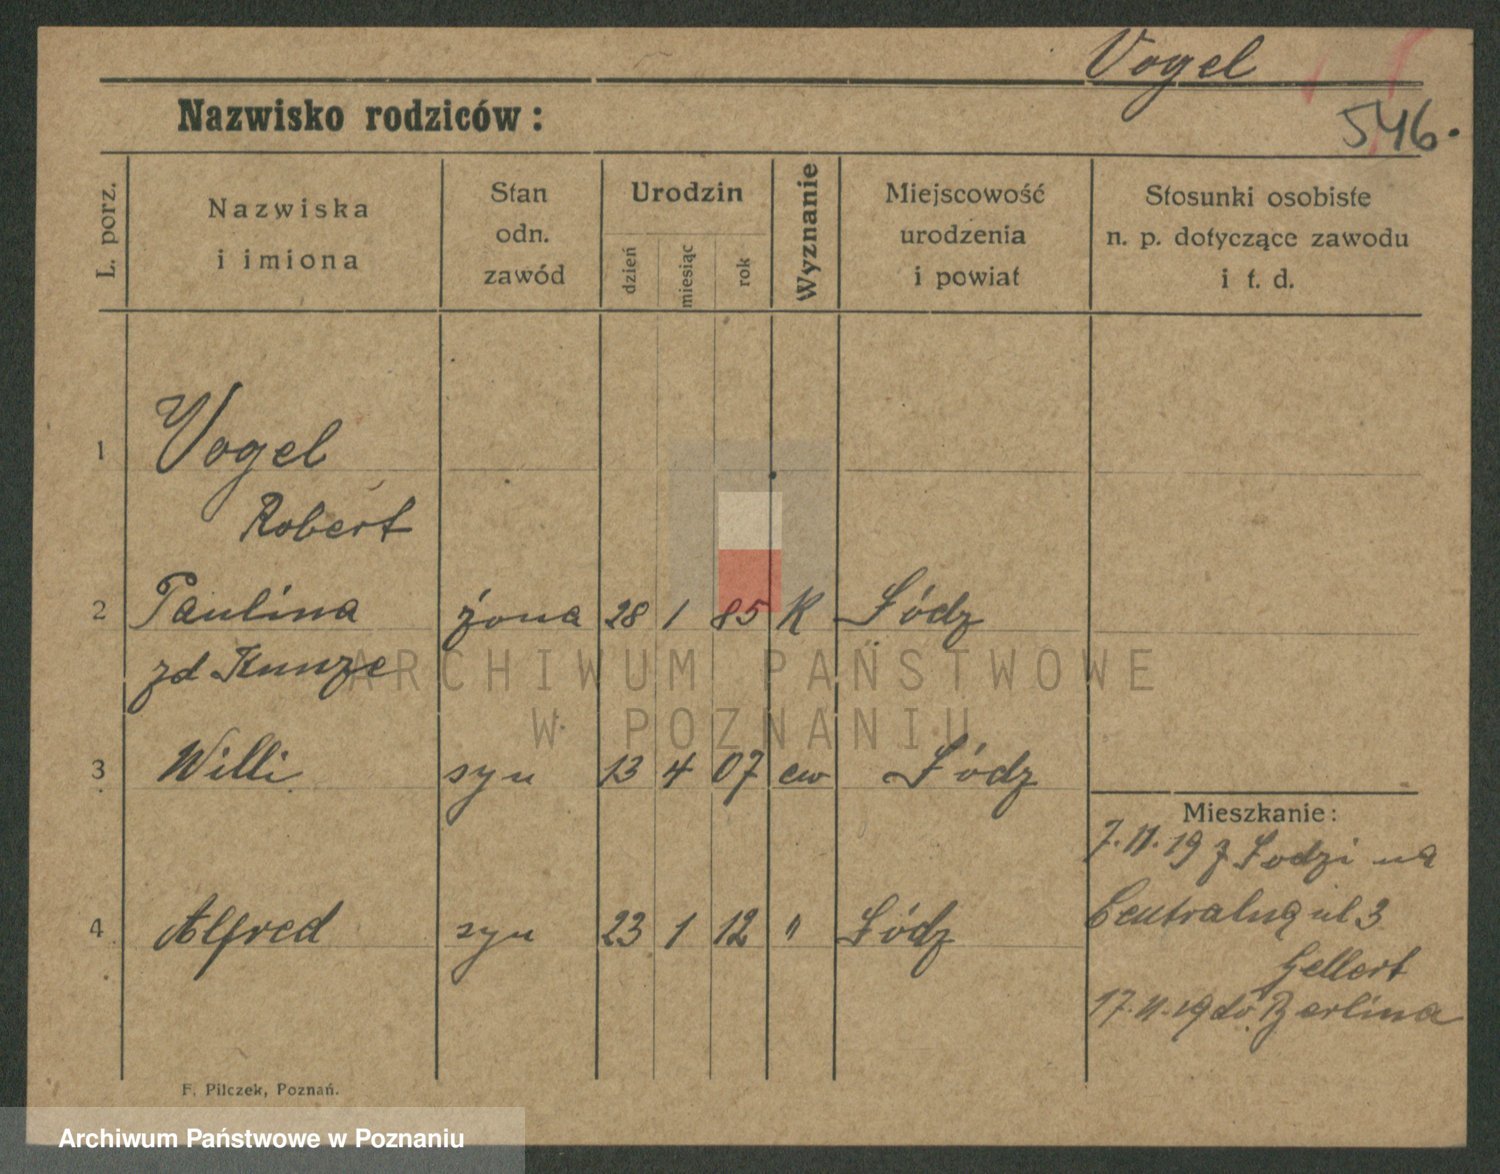 Vogel
Nazwisko rodziców:
546.
L. porz.
Nazwiska
i imiona
Stan
odn.
zawód
Urodzin
dzień
miesiąc
rok
Wyznanie
Miejscowość
urodzenia
i powiat
Stosunki osobiste
n. p. dotyczące zawodu
i t. d.
1 Vogel
Robert
2 Paulina żona 28 1 85 K Łódz
zd Kunze
3 Willi syn 13 4 07 ew Łódz
4 Alfred syn 23 1 12 " Łódz
Mieszkanie:
7.11.19 z Łodzi na
Centralną ul 3
Gellert
17.11.19 do Berlina
F. Pilczek, Poznań.
ARCHIWUM PAŃSTWOWE
W POZNANIU
Archiwum Państwowe w Poznaniu